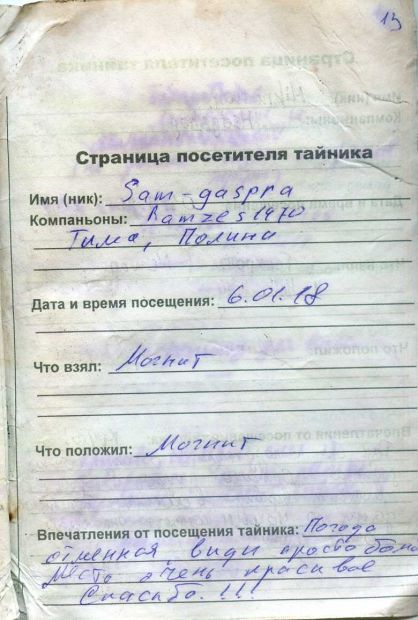 13
Страница посетителя тайника
Имя (ник): Sam-gaspra
Компаньоны: Ramzes1970
Тима, Полина
Дата и время посещения: 6.01.18
Что взял: Магнит
Что положил: Магнит
Впечатления от посещения тайника: Погода
отменная виды просто
Место очень красивое
Спасибо!!!